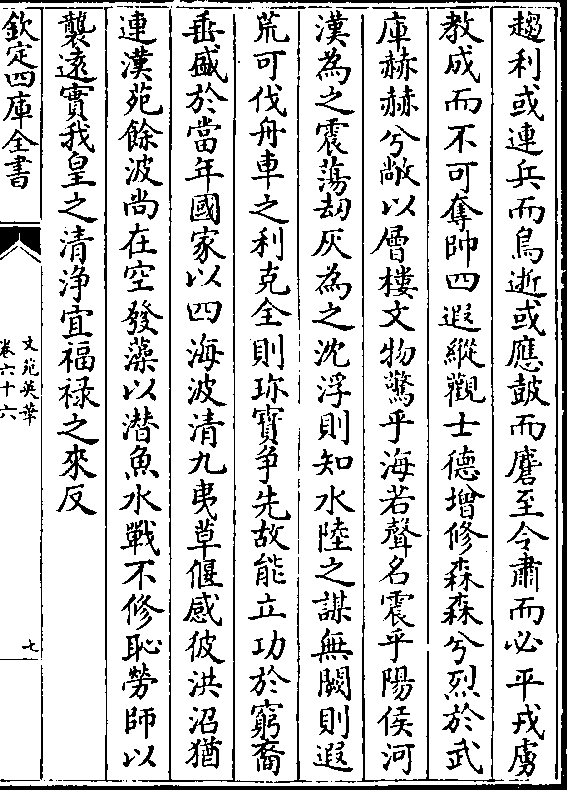 趨利或連兵而鳥逝或應鼓而麕至令肅而必平戎虜
教成而不可奪帥四遐縱觀士德增修森森兮烈於武
庫赫赫兮敞以層樓文物驚乎海若聲名震乎陽侯河
漢為之震蕩刼灰為之沈浮則知水陸之謀無闕則遐
荒可伐舟車之利克全則珎寳争先故能立功於窮裔
垂盛於當年國家以四海波清九夷草偃感彼洪沼猶
連漢苑餘波尚在空發藻以潜魚水戰不修恥勞師以
襲逺實我皇之清浄宜福禄之來反
欽定四庫全書
文苑英華
卷六十六
七